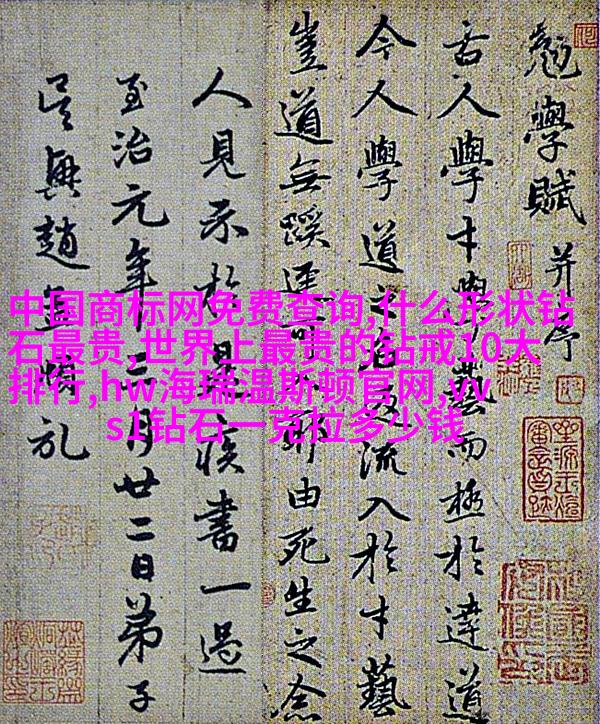 勉學賦并序
古人學才藝而極於達道
今人學道之流入於才藝
豈道無蹊耶由死生之念
人見示於疾書一過
至治元年十二月廿二日弟子
吳興趙孟頫
中国商标网免费查询,什么形状钻
石最贵,世界上最贵的钻戒10大
排行,hw海瑞温斯顿官网,vv
s1钻石一克拉多少钱